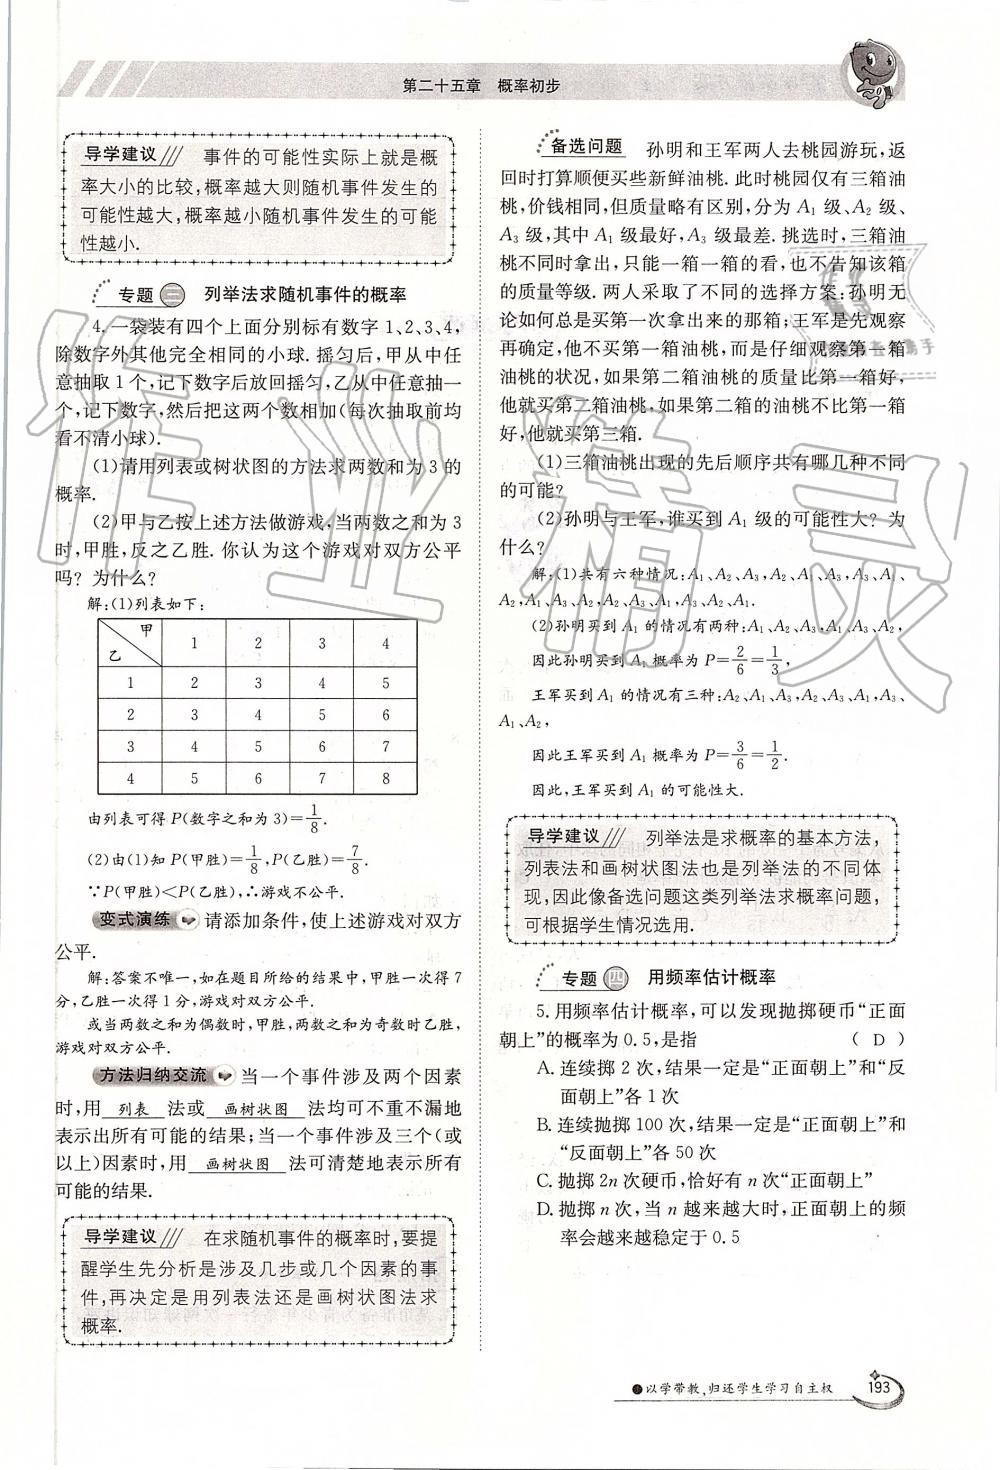 第二十五章　概率初步
导学建议　事件的可能性实际上就是概
率大小的比较,概率越大则随机事件发生的
可能性越大,概率越小随机事件发生的可能
性越小.
专题三　列举法求随机事件的概率
4.一袋装有四个上面分别标有数字1、2、3、4,
除数字外其他完全相同的小球. 摇匀后,甲从中任
意抽取1个,记下数字后放回摇匀,乙从中任意抽一
个,记下数字,然后把这两个数相加(每次抽取前均
看不清小球).
(1)请用列表或树状图的方法求两数和为3的
概率.
(2)甲与乙按上述方法做游戏,当两数之和为3
时,甲胜,反之乙胜. 你认为这个游戏对双方公平
吗? 为什么?
解:(1)列表如下:
甲 乙 1 2 3 4
1 2 3 4 5
2 3 4 5 6
3 4 5 6 7
4 5 6 7 8
由列表可得P(数字之和为3)=1/8.
(2)由(1)知P(甲胜)=1/8,P(乙胜)=7/8.
∵P(甲胜)<P(乙胜),∴游戏不公平.
变式演练　请添加条件,使上述游戏对双方
公平.
解:答案不唯一,如在题目所给的结果中,甲胜一次得7
分,乙胜一次得1分,游戏对双方公平.
或当两数之和为偶数时,甲胜,两数之和为奇数时乙胜,
游戏对双方公平.
方法归纳交流　当一个事件涉及两个因素
时,用 列表 法或 画树状图 法均可不重不漏地
表示出所有可能的结果;当一个事件涉及三个(或
以上)因素时,用 画树状图 法可清楚地表示所有
可能的结果.
导学建议　在求随机事件的概率时,要提
醒学生先分析是涉及几步或几个因素的事
件,再决定是用列表法还是画树状图法求
概率.
备选问题　孙明和王军两人去桃园游玩,返
回时打算顺便买些新鲜油桃. 此时桃园仅有三箱油
桃,价钱相同,但质量略有区别,分为A₁级、A₂级、
A₃级,其中A₁级最好,A₃级最差. 挑选时,三箱油
桃不同时拿出,只能一箱一箱的看,也不告知该箱
的质量等级. 两人采取了不同的选择方案:孙明无
论如何总是买第一次拿出来的那箱;王军是先观察
再确定,他不买第一箱油桃,而是仔细观察第一箱
油桃的状况,如果第二箱油桃的质量比第一箱好,
他就买第二箱油桃,如果第二箱的油桃不比第一箱
好,他就买第三箱.
(1)三箱油桃出现的先后顺序共有哪几种不同
的可能?
(2)孙明与王军,谁买到A₁级的可能性大? 为
什么?
解:(1)共有六种情况:A₁、A₂、A₃,A₂、A₁、A₃,A₃、A₁、
A₂,A₁、A₃、A₂,A₂、A₃、A₁,A₃、A₂、A₁.
(2)孙明买到A₁的情况有两种:A₁、A₂、A₃,A₁、A₃、A₂,
因此孙明买到A₁概率为P=2/6=1/3,
王军买到A₁的情况有三种:A₂、A₁、A₃,A₂、A₃、A₁,A₃、
A₁、A₂,
因此王军买到A₁概率为P=3/6=1/2.
因此,王军买到A₁的可能性大.
导学建议　列举法是求概率的基本方法,
列表法和画树状图法也是列举法的不同体
现,因此像备选问题这类列举法求概率问题,
可根据学生情况选用.
专题四　用频率估计概率
5.用频率估计概率,可以发现抛掷硬币“正面
朝上”的概率为0.5,是指　( D )
A. 连续掷2次,结果一定是“正面朝上”和“反
面朝上”各1次
B. 连续抛掷100次,结果一定是“正面朝上”和
“反面朝上”各50次
C. 抛掷2n次硬币,恰好有n次“正面朝上”
D. 抛掷n次,当n越来越大时,正面朝上的频
率会越来越稳定于0.5
以学带教,归还学生学习自主权
193
作业精灵